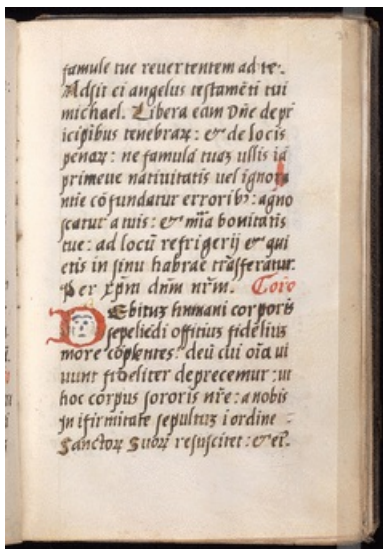 famule tue reuertentem ad te.
Adsit ei angelus testamēti tui
michael. Libera eam Dn̄e de pri
icipibus tenebraꝝ: & de locis
penaꝝ: ne famula tuaʒ ullis iā
primeue natiuitatis uel ignora
ntie cōfundatur erroribꝰ: agno
scatur a tuis: & mīa bonitatis
tue: ad locū refrigerij & qui
etis in sinu habrae trāsferatur.
Per xp̄m dn̄m nr̄m. Toro
Debitus humani corporis
sepeliēdi offitius fidelius
more cōplentes: deū cui oīa ui
uunt fideliter deprecemur: ut
hoc corpus sororis nr̄e: a nobis
in ifirmitate sepultuʒ i ordine
Sanctoꝝ Suoꝝ resuscitet: & eī.